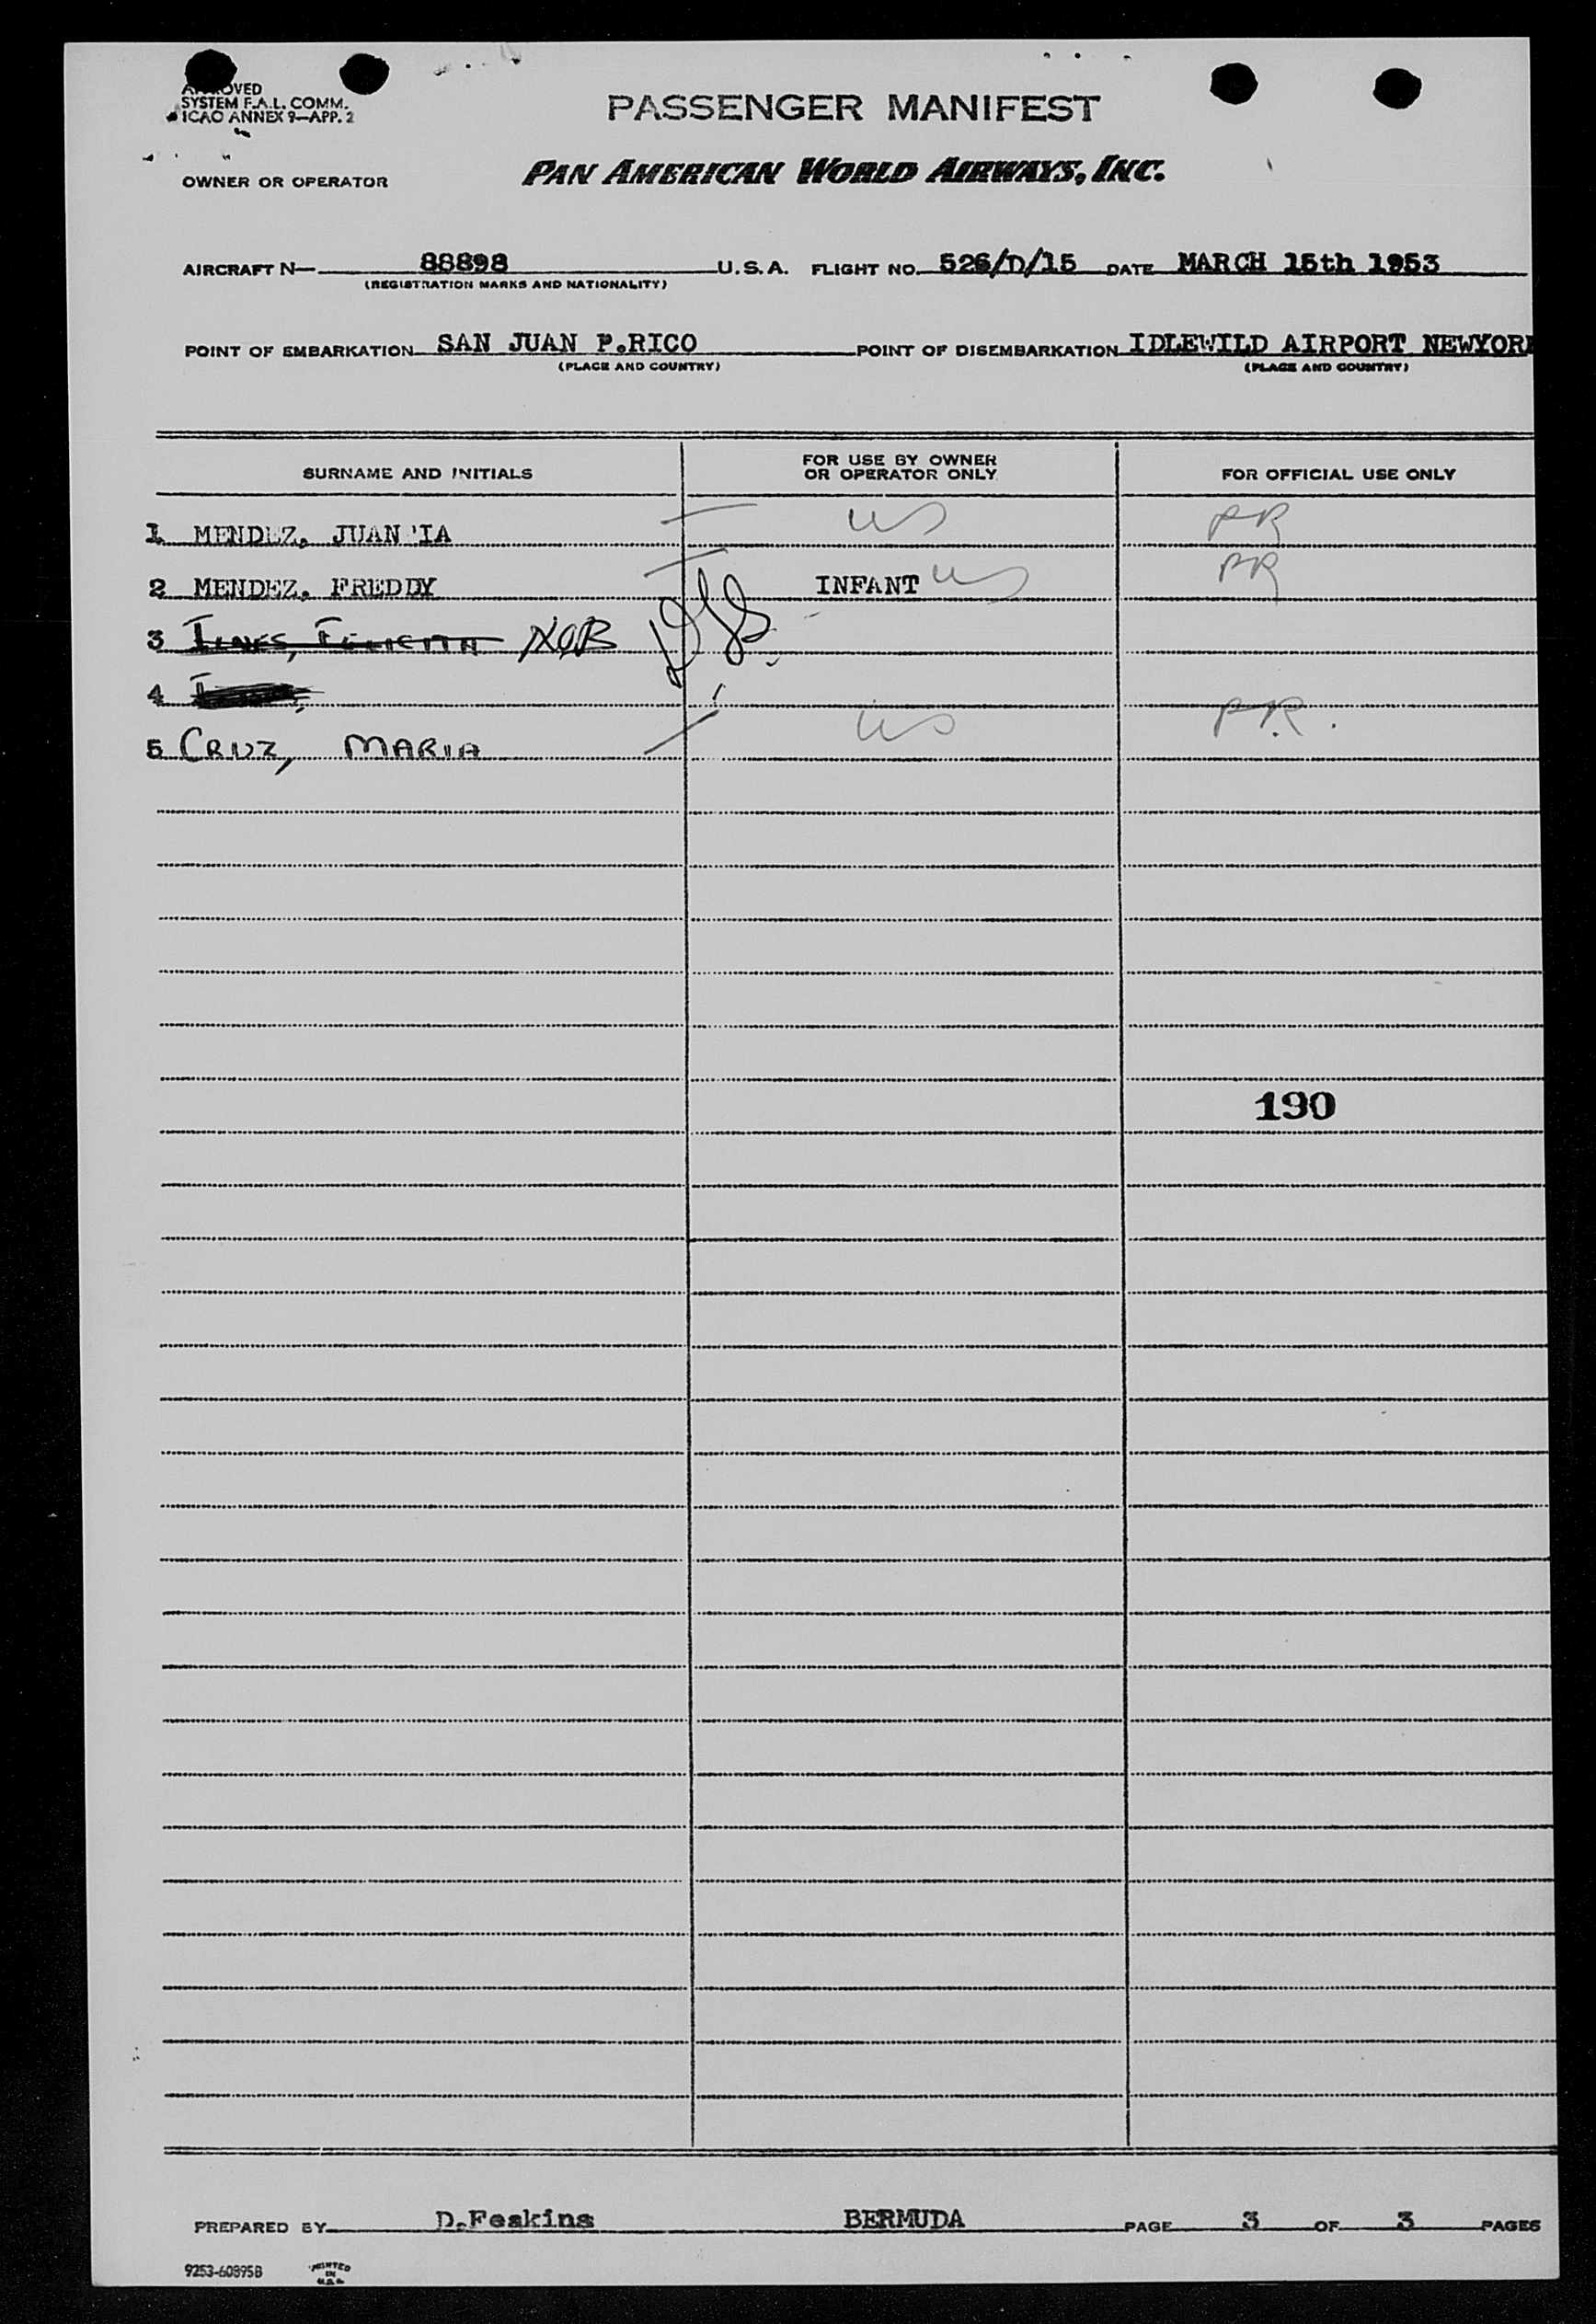 APPROVED
SYSTEM F.A.L. COMM.
ICAO ANNEX 9—APP. 2
PASSENGER MANIFEST
OWNER OR OPERATOR PAN AMERICAN WORLD AIRWAYS, INC.
AIRCRAFT N— 88898 U.S.A. FLIGHT NO. 526/D/15 DATE MARCH 15th 1953
(REGISTRATION MARKS AND NATIONALITY)
POINT OF EMBARKATION SAN JUAN P.RICO POINT OF DISEMBARKATION IDLEWILD AIRPORT NEWYORK
(PLACE AND COUNTRY) (PLACE AND COUNTRY)
SURNAME AND INITIALS FOR USE BY OWNER OR OPERATOR ONLY FOR OFFICIAL USE ONLY
1 MENDEZ, JUAN'IA US PR
2 MENDEZ, FREDDY INFANT US PR
3 NOB
4
5 CRUZ, MARIA US P.R.
190
PREPARED BY D.Feakins BERMUDA PAGE 3 OF 3 PAGES
9253-60895B PRINTED IN U.S.A.